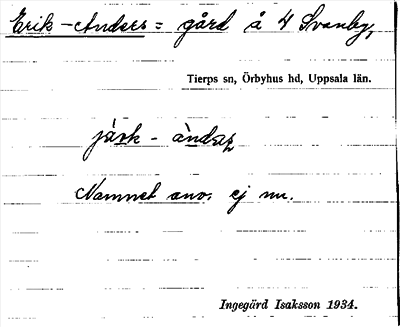 Erik-Anders = gård å 4 Svanby,
Tierps sn, Örbyhus hd, Uppsala län.
Namnet anv. ej nu.
Ingegärd Isaksson 1934.